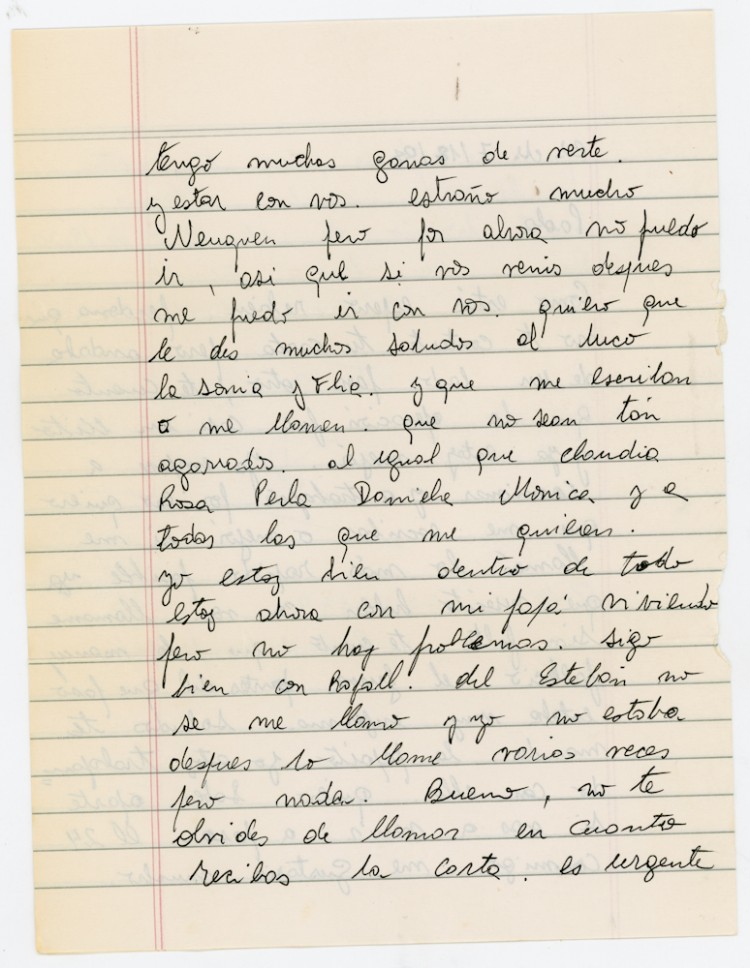 tengo muchas ganas de verte.
y estar con vos. estraño mucho
Neuquen pero por ahora no puedo
ir, asi que si vos venis despues
me puedo ir con vos. quiero que
le des muchos saludos al Luco
la sonia y Flia. y que me escriban
o me llamen. que no sean tan
agarrados. al igual que claudia
Rosa Perla Daniela Monica y a
todos los que me quieran.
yo estoy bien dentro de todo
estoy ahora con mi papá viviendo
pero no hay problemas. sigo
bien con Rafael. del Esteban no
se me llamo y yo no estaba
despues lo llame varias veces
pero nada. Bueno, no te
olvides de llamar en cuanto
recibas la carta. es urgente